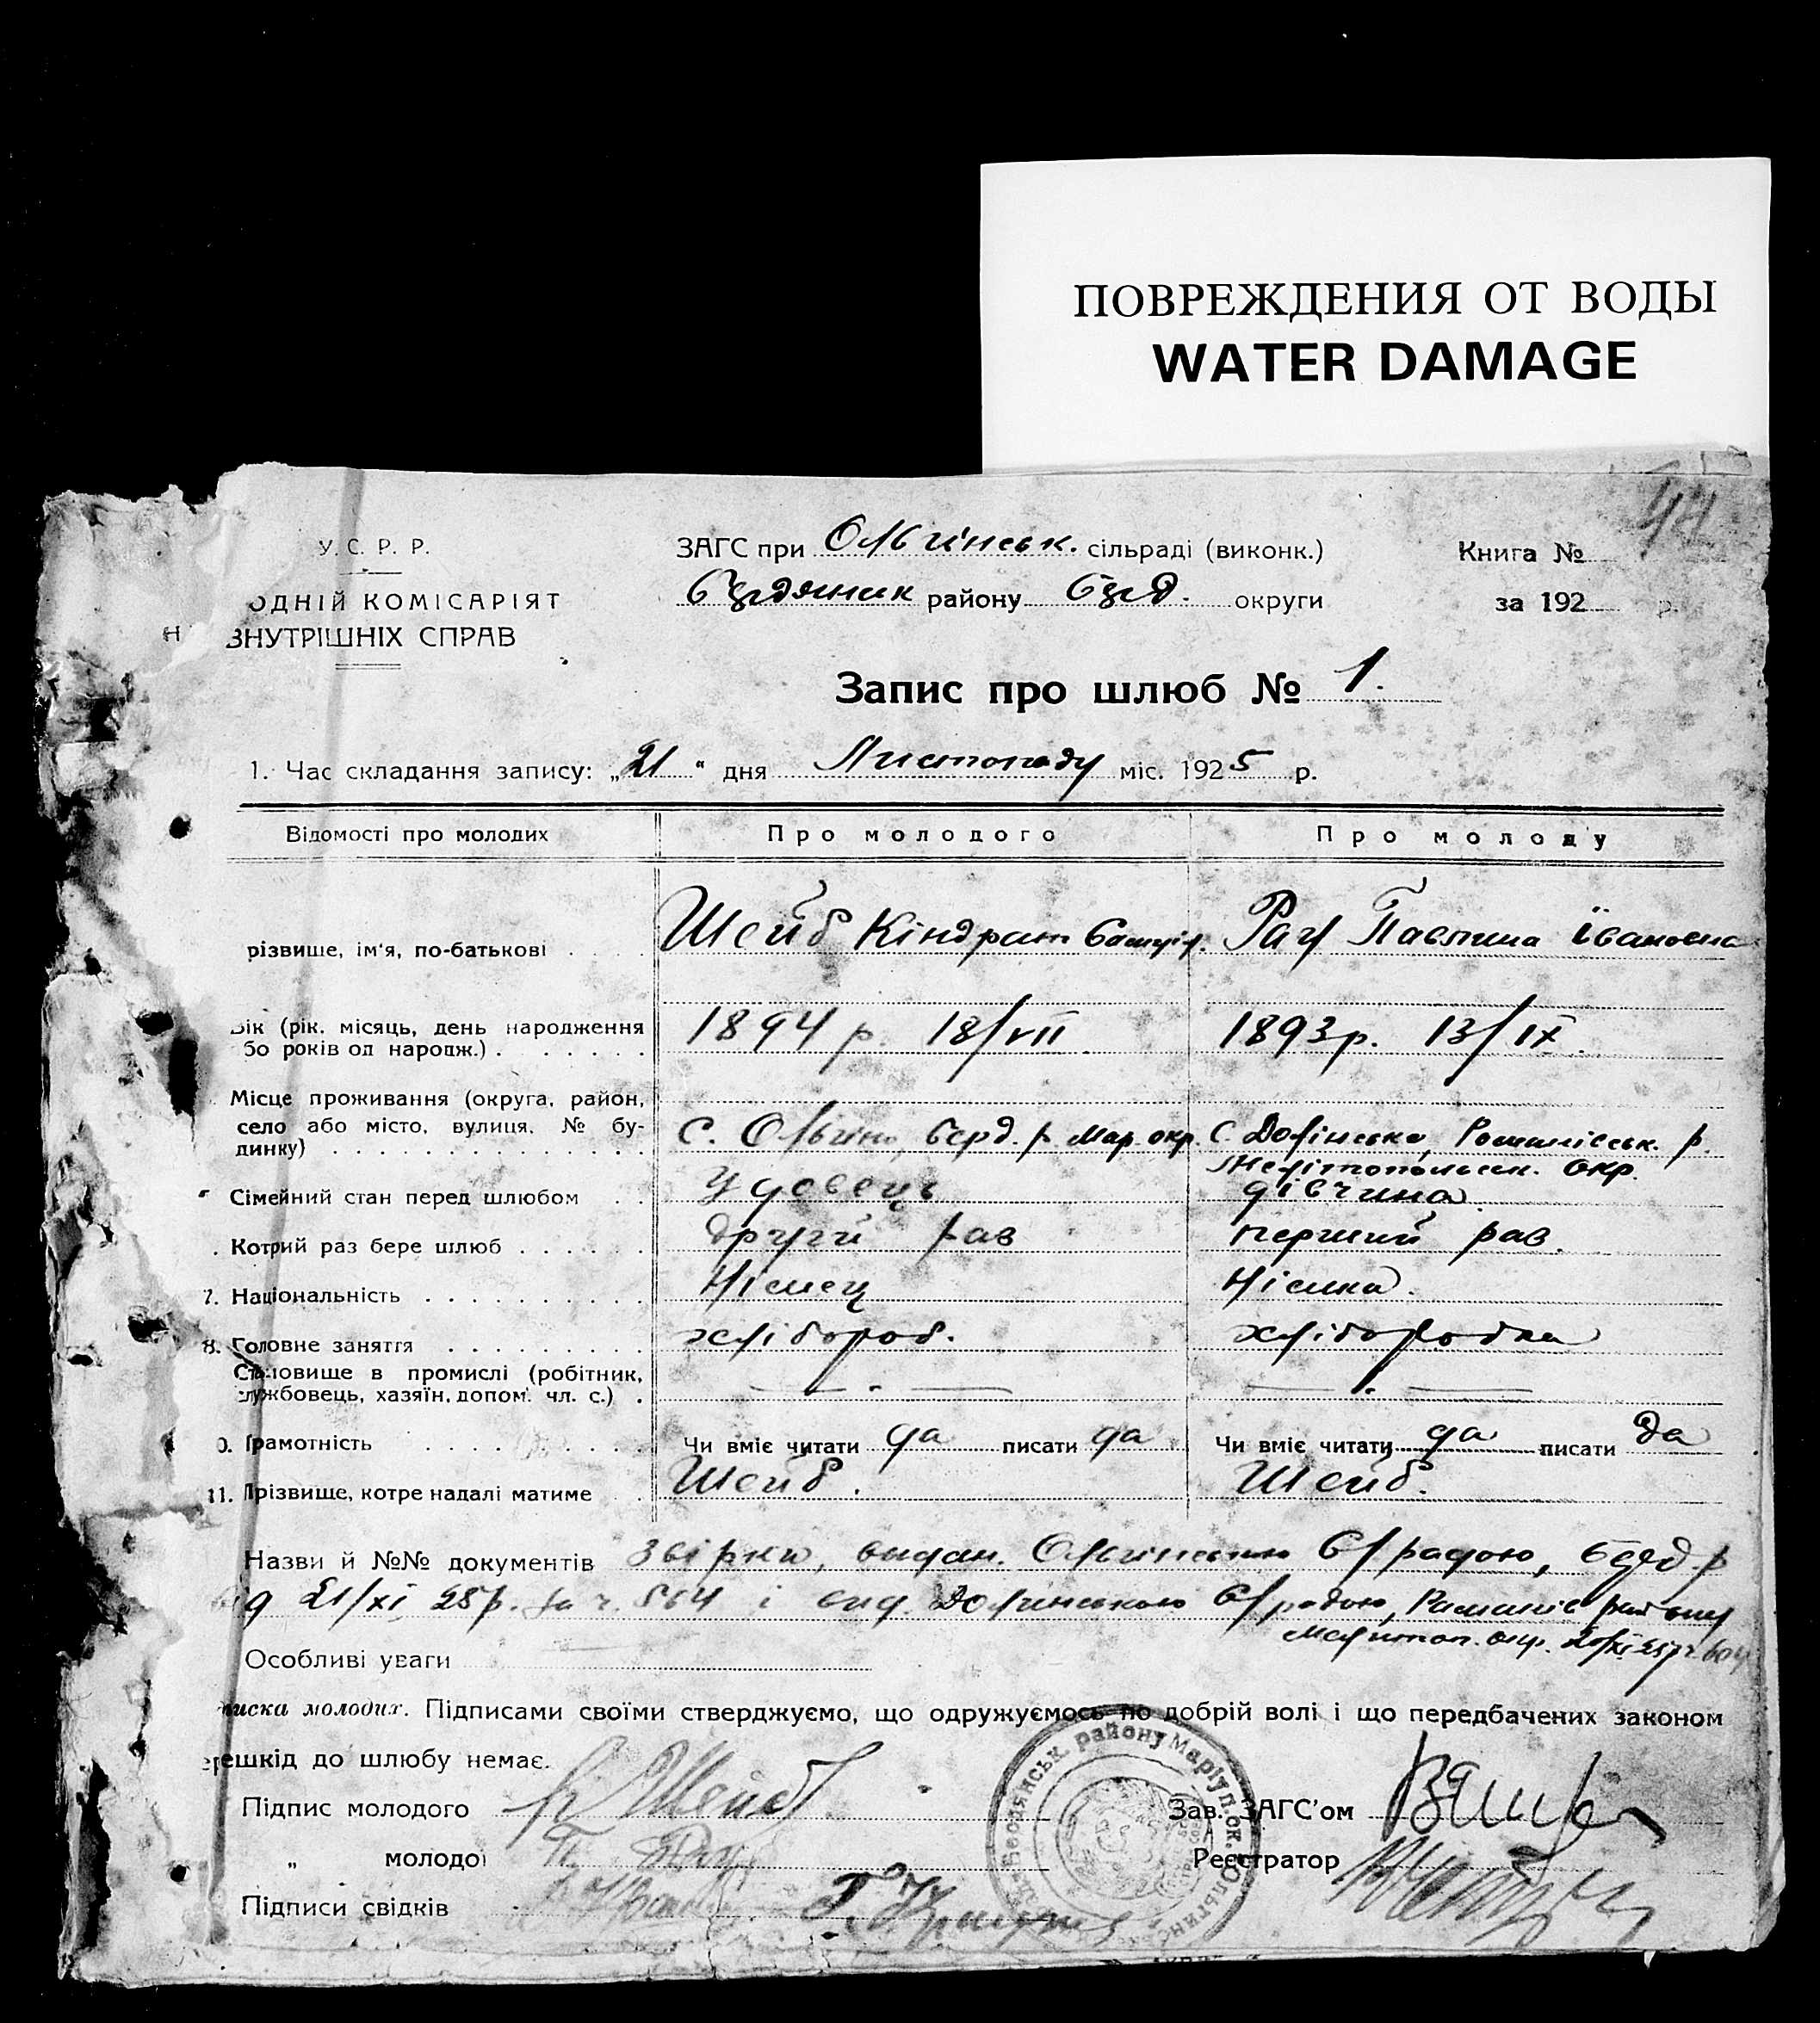 ПОВРЕЖДЕНИЯ ОТ ВОДЫ
WATER DAMAGE
У. С. Р. Р.
ОДНІЙ КОМІСАРІЯТ
ВНУТРІШНІХ СПРАВ
ЗАГС при Ольгінськ. сільраді (виконк.)
району округи
Книга №
за 192 р.
Запис про шлюб № 1.
1. Час складання запису: „21“ дня Листопаду міс. 1925 р.
Відомості про молодих Про молодого Про молоду
різвище, ім'я, по-батькові Шейб Кіндрат Павлина Івановна
ік (рік, місяць, день народження
бо років од народж.) 1894 р. 18/VII 1893 р. 13/IX.
Місце проживання (округа, район,
село або місто, вулиця, № бу-
динку) с. Ольгіно, Берд. р. Мар. окр. с. Долінське, р.
Мелітопольськ. окр.
Сімейний стан перед шлюбом удовець дівчина
Котрий раз бере шлюб другий раз перший раз.
7. Національність Німец Німка.
8. Головне заняття хлібороб. хліборобка
Становище в промислі (робітник,
службовець, хазяїн, допом. чл. с.) — . — — . —
0. Грамотність Чи вміє читати да писати да Чи вміє читати да писати да
11. Прізвище, котре надалі матиме Шейб. Шейб.
Назви й №№ документів видан. Ольгінською С/радою,
21/XI 25 р. за ч. 564 і вид. Долінською С/радою, району
Мелітоп. окр.
Особливі уваги
писка молодих. Підписами своїми стверджуємо, що одружуємось по добрій волі і що передбачених законом
ерешкід до шлюбу немає.
Підпис молодого К Шейб Зав. ЗАГС'ом
„ молодої Реєстратор
Підписи свідків
Бердянськ. району Маріуп. ок.